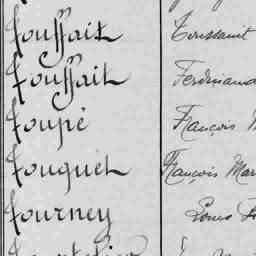 Fouffait Toussaint
Fouffait Ferdinand
Foupé François
Fouquet François Mar
Fourney Louis